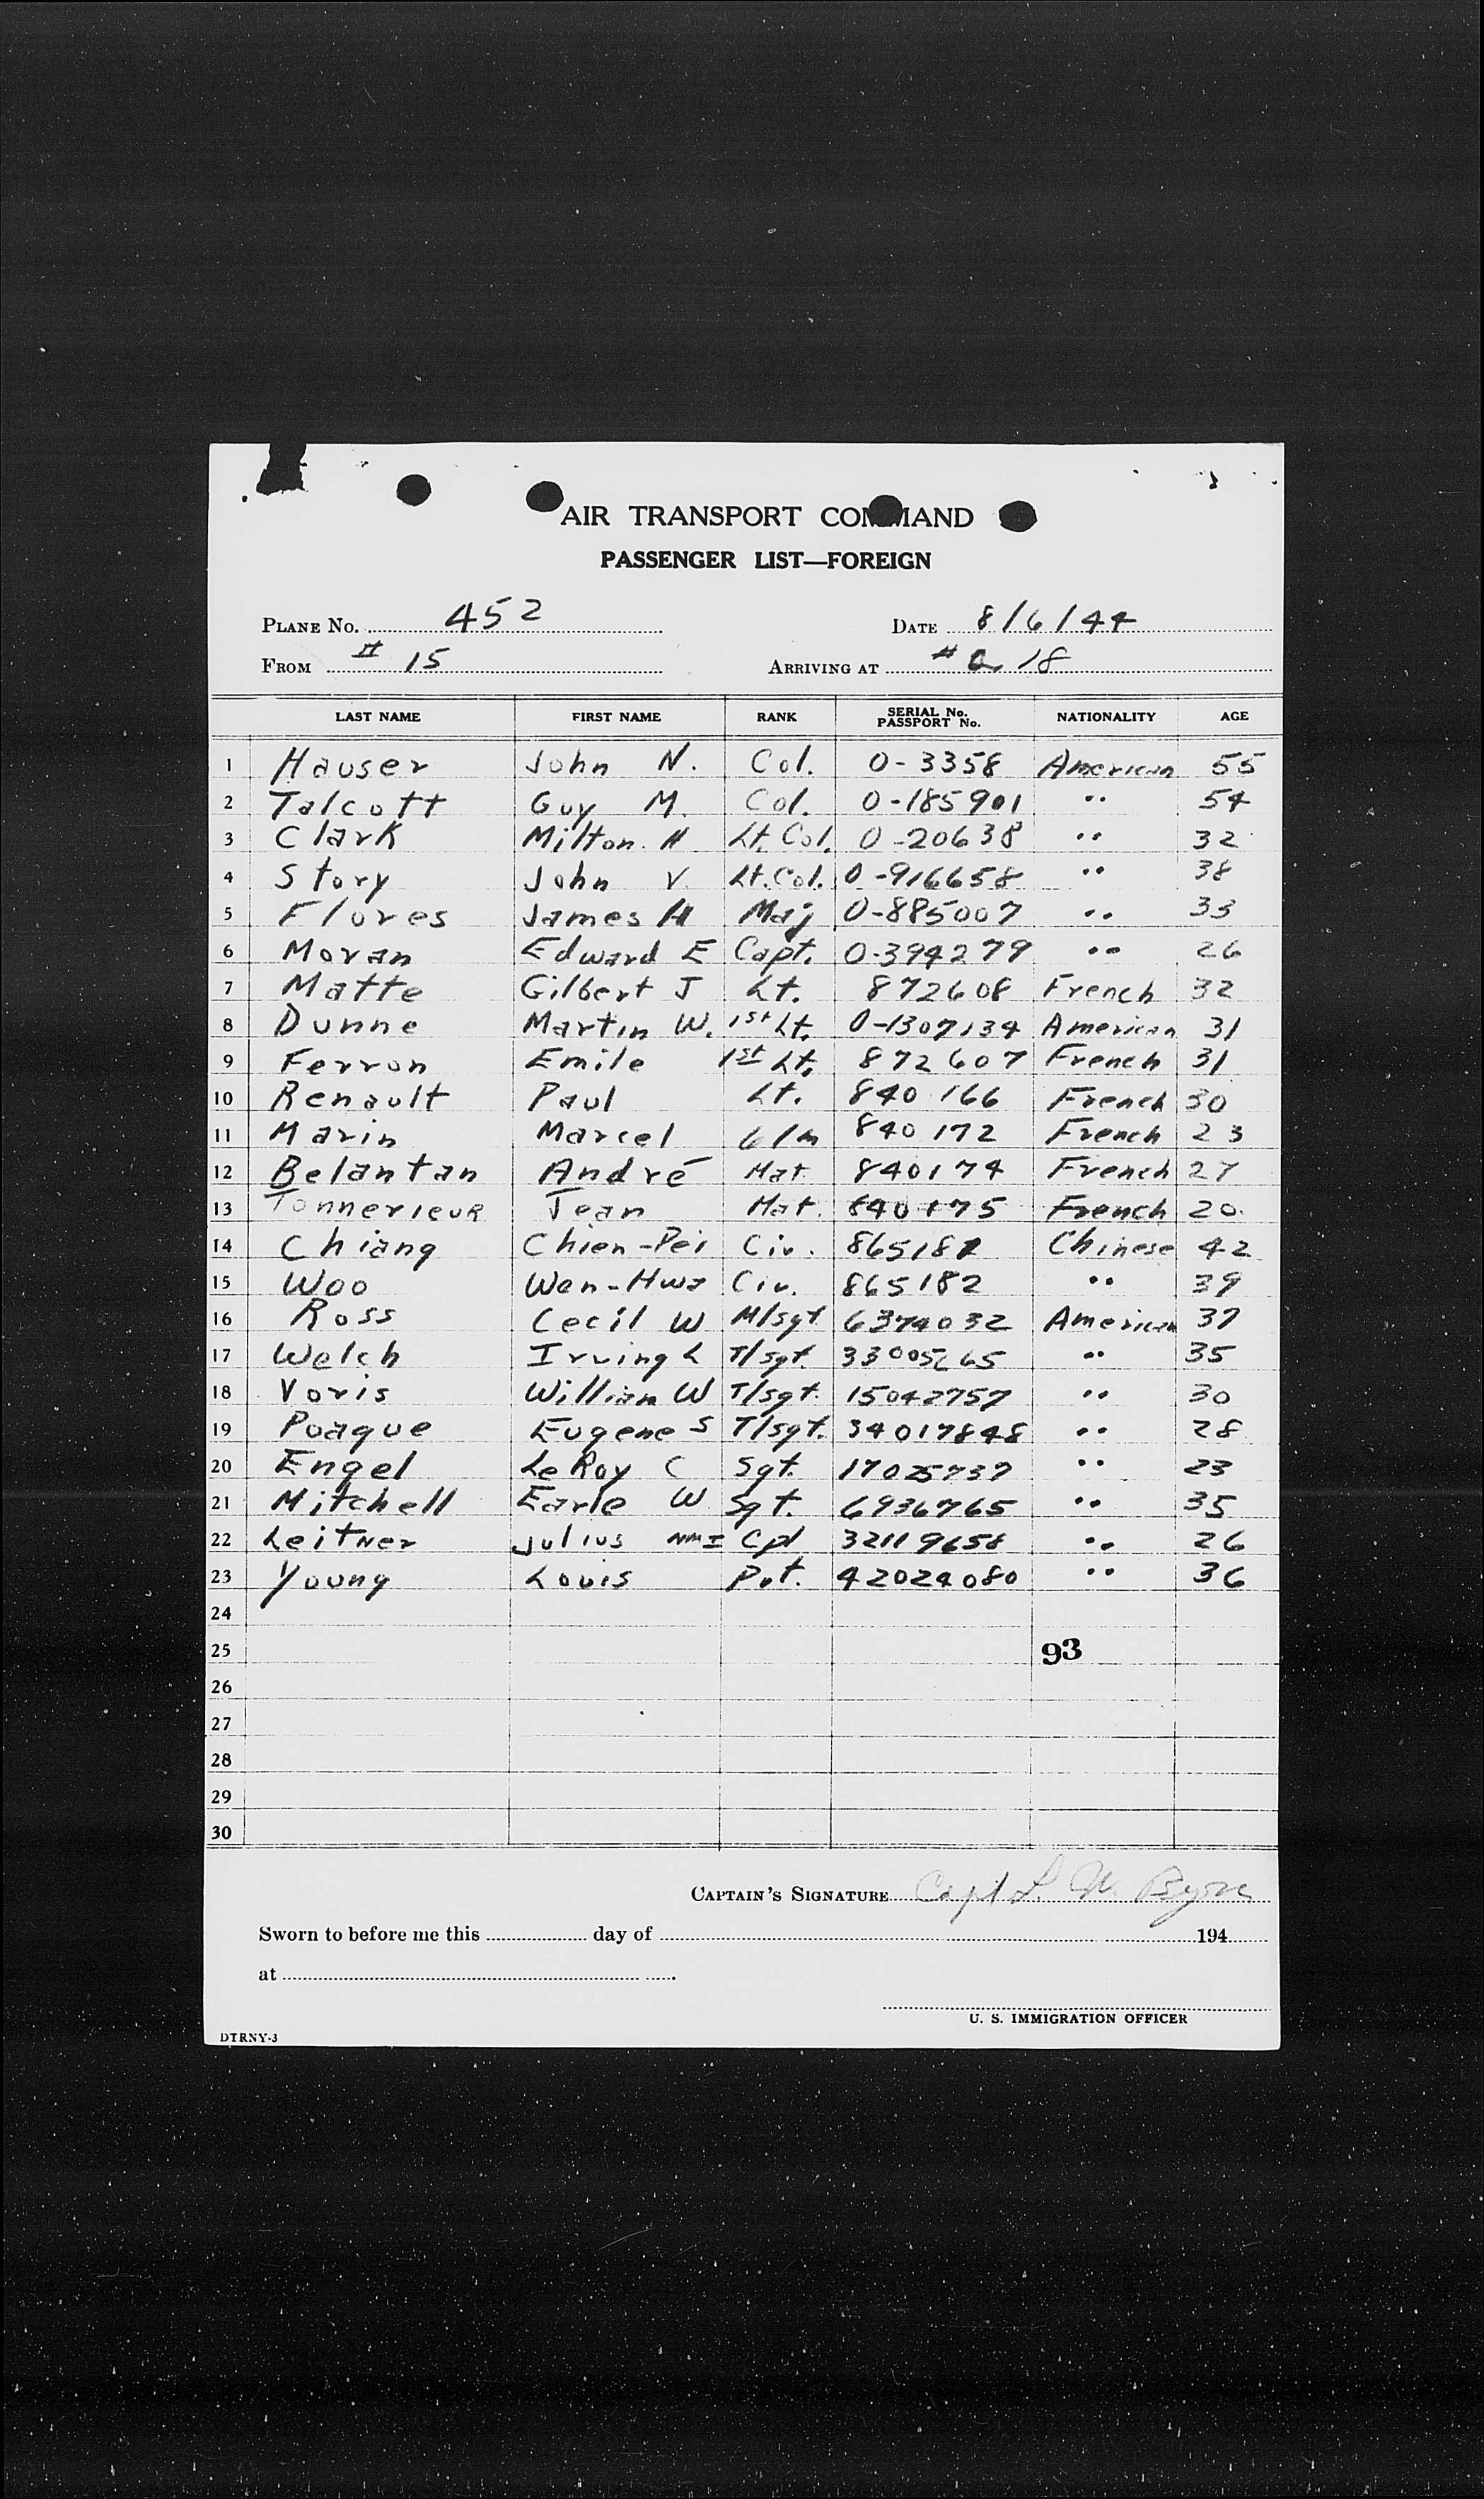 AIR TRANSPORT COMMAND
PASSENGER LIST—FOREIGN
PLANE No. 452 DATE 8/6/44
FROM # 15 ARRIVING AT # 18
LAST NAME FIRST NAME RANK SERIAL No. PASSPORT No. NATIONALITY AGE
1 Hauser John N. Col. 0-3358 American 55
2 Talcott Guy M. Col. 0-185901 " 54
3 Clark Milton H Lt. Col. 0-20638 " 32
4 Story John V. Lt. Col. 0-916658 " 38
5 Flores James H Maj 0-885007 " 33
6 Moran Edward E Capt. 0-394279 " 26
7 Matte Gilbert J Lt. 872608 French 32
8 Dunne Martin W. 1st Lt. 0-1307134 American 31
9 Ferron Emile 1st Lt. 872607 French 31
10 Renault Paul Lt. 840166 French 30
11 Marin Marcel 840172 French 23
12 Belantan André Mat 840174 French 27
13 Tonnerieur Jean Mat. 840175 French 20
14 Chiang Chien-Pei Civ. Chinese 42
15 Woo Wen-Hwa Civ. 865182 " 39
16 Ross Cecil W M/sgt 6374032 American 37
17 Welch Irving L T/sgt. " 35
18 Voris William W T/sgt. 15042757 " 30
19 Poague Eugene S T/sgt. 34017848 " 28
20 Engel LeRoy C Sgt. 17025737 " 23
21 Mitchell Earle W Sgt. 6936765 " 35
22 Leitner Julius NMI Cpl 32119658 " 26
23 Young Louis Pvt. 42024080 " 36
24
25 93
26
27
28
29
30
CAPTAIN'S SIGNATURE Capt L. W.
Sworn to before me this day of 194
at
U. S. IMMIGRATION OFFICER
DTRNY-3